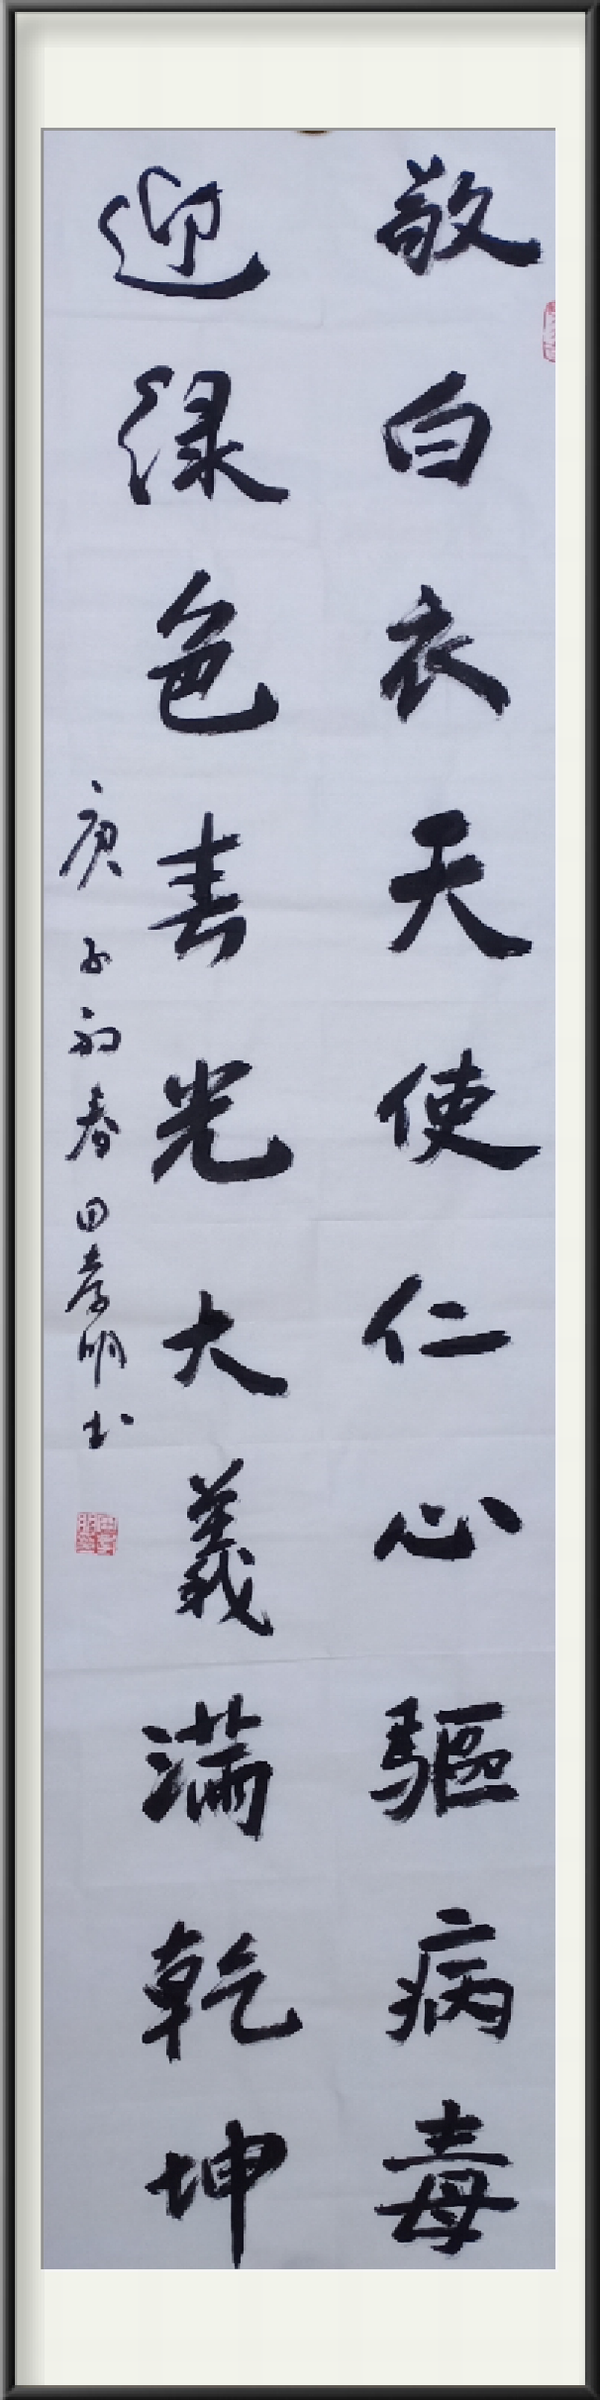 敬白衣天使仁心驅病毒
迎绿色春光大義满乾坤
庚子初春田孝明书